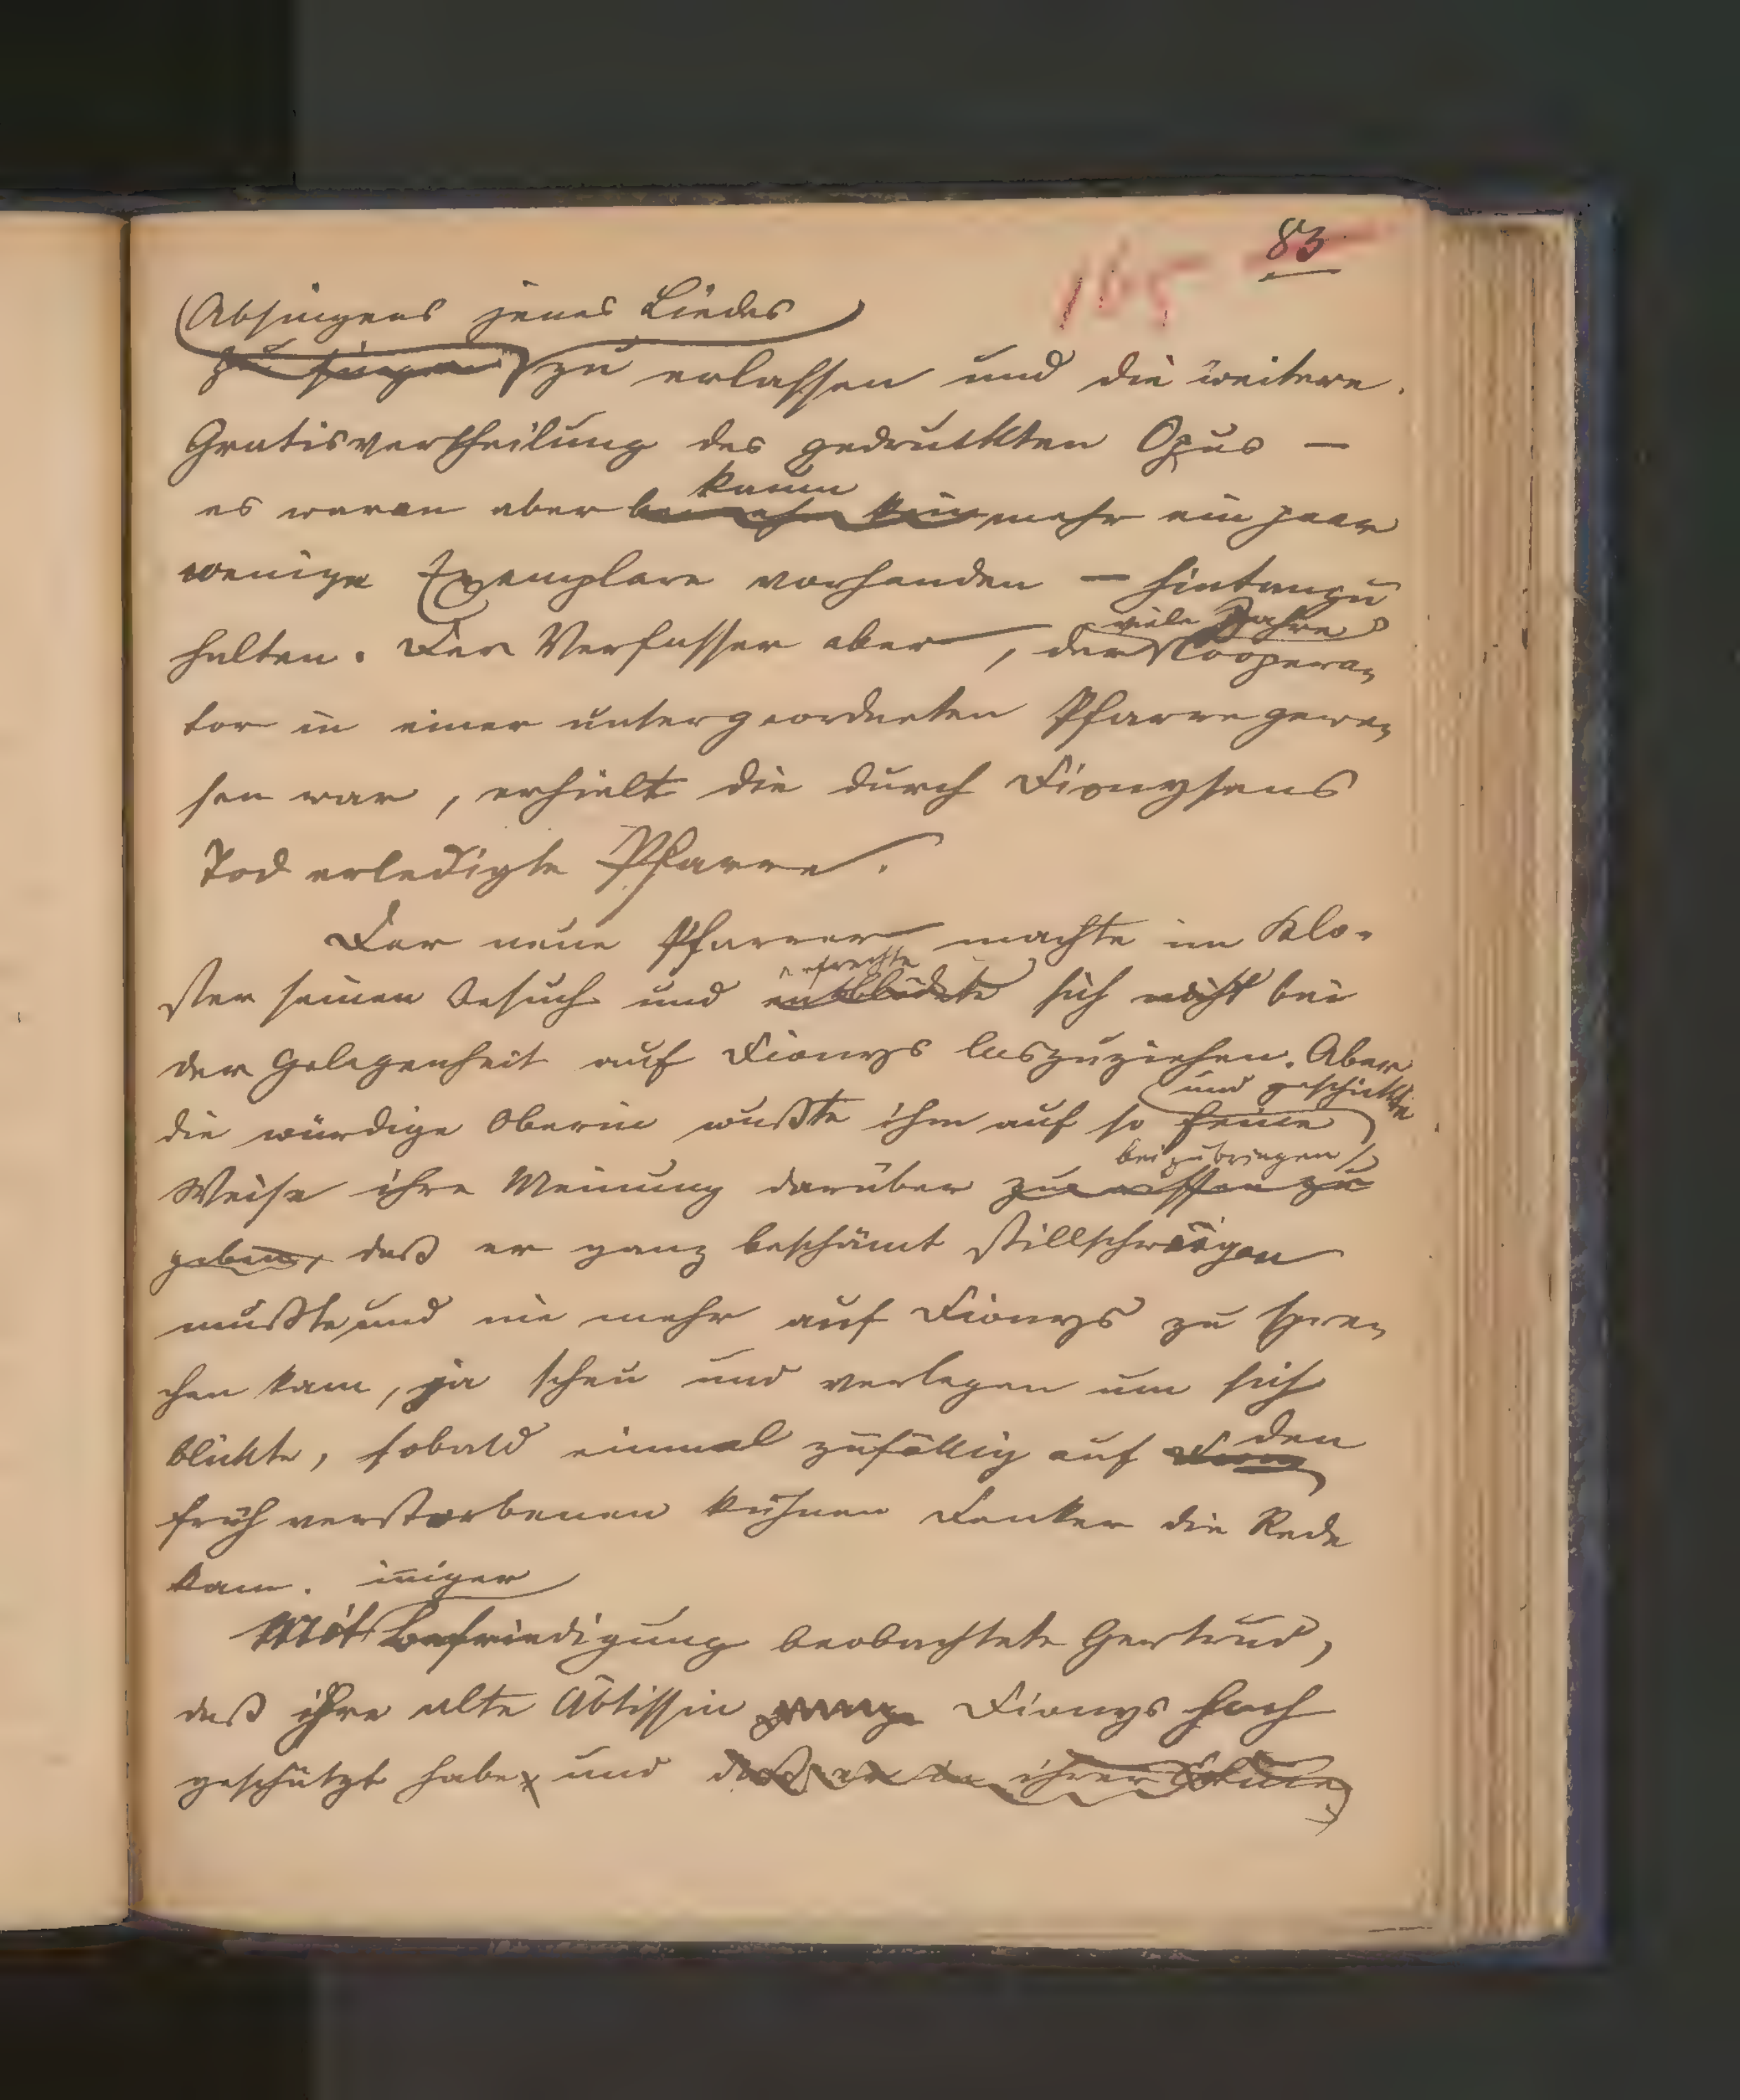 83
165
Absingens jenes Liedes
zu singen zu erlassen und die weitere
Gratisvertheilung des gedruckten Opus —
kaum
es waren aber mehr ein paar
wenige Exemplare vorhanden — hintanzu
viele Jahre
halten. Der Verfasser aber, der Coopera-
tor in einer untergeordneten Pfarre gewe-
sen war, erhielt die durch Dionysens
Tod erledigte Pfarre.
Der neue Pfarrer machte im Klo-
erfrechte
ster seinen Besuch und entblödete sich nicht bei
der Gelegenheit auf Dionys loszuziehen. Aber
und geschickte
die würdige Oberin wußte ihm auf so feine
beizubringen,
Weise ihre Meinung darüber zu wissen zu
geben, daß er ganz beschämt stillschweigen
mußte und nie mehr auf Dionys zu spre-
chen kam, ja scheu und verlegen um sich
den
blickte, sobald einmal zufällig auf
früh verstorbenen kühnen Denker die Rede
kam.
inniger
Mit Befriedigung beobachtete Gertrud,
daß ihre alte Äbtissin Dionys hoch
geschätzt habe und daß er in ihrer